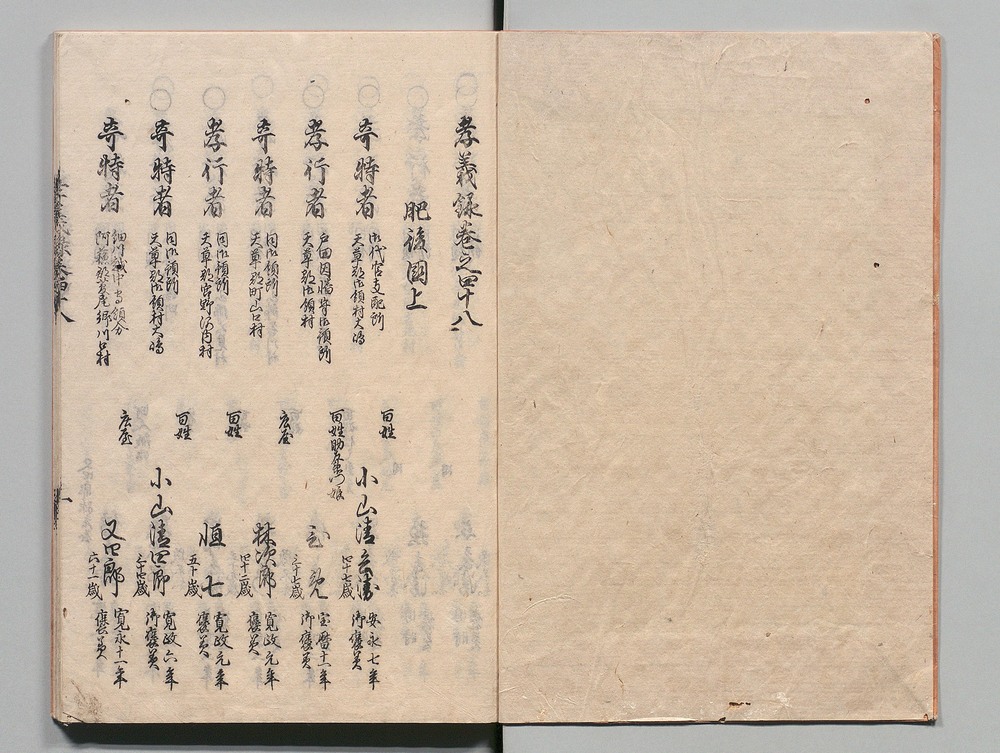 孝義録巻之四十八
肥後國上
奇特者
御代官支配所
天草郡御領村大嶋
百姓
小山清兵衛
四十七歳
安永七年
御褒美
孝行者
戸田因幡守御預所
天草郡御領村
百姓助左衛門娘
三十七歳
宝暦十一年
御褒美
奇特者
同御預所
天草郡町山口村
庄屋
林次郎
四十二歳
寛政元年
褒美
孝行者
同御預所
天草郡宮野河内村
百姓
恒七
五十歳
寛政元年
褒美
奇特者
同御預所
天草郡御領村大嶋
百姓
小山清四郎
三十七歳
寛政六年
御褒美
奇特者
細川越中守領分
阿蘇郡菅尾郷川口村
庄屋
又四郎
六十一歳
寛永十一年
褒美
孝義録巻四十八
一